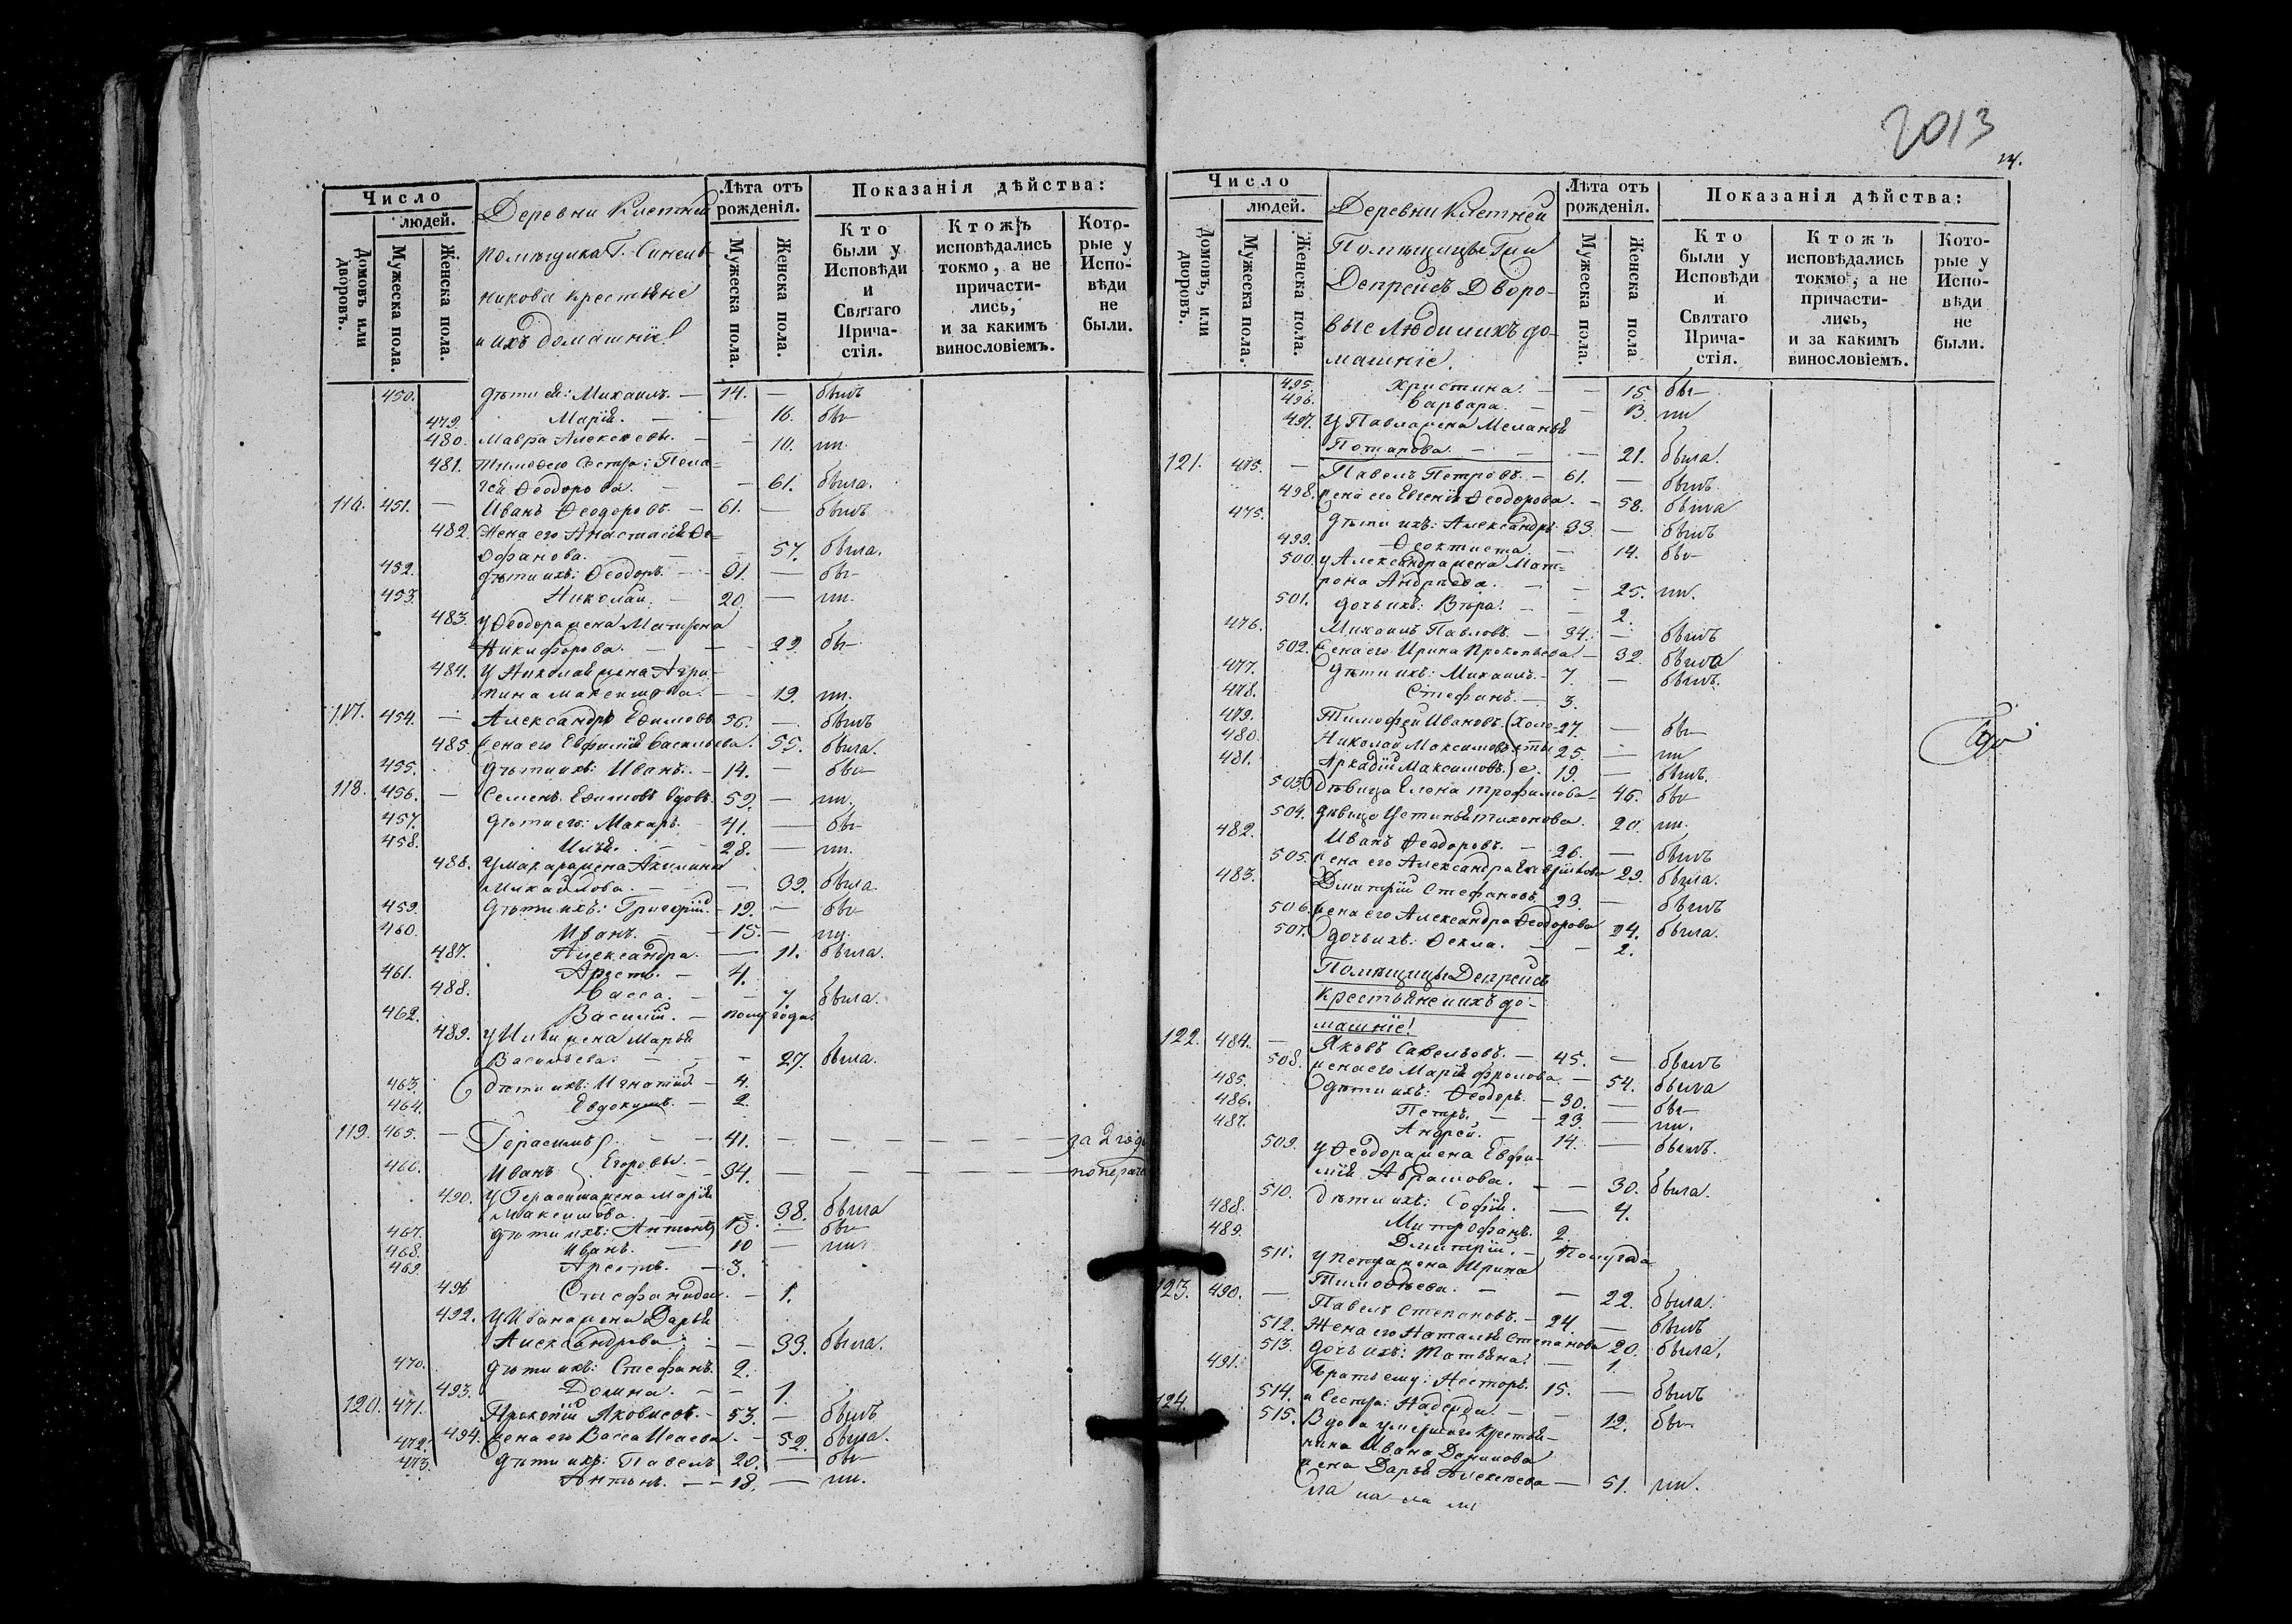 Число
людей.
Домовъ или дворовъ.
Мужеска пола.
Женска пола.
Деревни Клетней
помѣщика Г. Синель
никова крестьяне
и ихъ домашніе
Лѣта отъ рожденія.
Мужеска пола.
Женска пола.
Показанія дѣйства:
Кто были у Исповѣди и Святаго Причастія.
Ктожъ исповѣдались токмо, а не причастились, и за какимъ винословіемъ.
Которые у Исповѣди не были.
450. дѣти ей: Михаилъ. — 14. — былъ
479. Марія. — 16. бы—
480. Мавра Алексѣевы. — 10. ии.
481. Тимоѳею Сестра: Пела=
гея Ѳеодорова. — 61. была.
116. 451. — Иванъ Ѳеодоровъ. — 61. — былъ
482. Жена его Анастасія Ѳе=
офанова. — 57. была.
452. дѣти ихъ: Ѳеодоръ. — 31. — бы—
453. Николай. — 20. — ии.
483. у Ѳеодора жена Матрена
Никифорова. — 29. бы—
484. У Николая жена Агри-
пина Максимова. — 19. ии.
117. 454. — Александръ Ефимовъ 56. — былъ
485. жена его Евфимія Васильева. 55. была.
455. дѣти ихъ: Иванъ. — 14. — бы—
118. 456. — Семенъ Ефимовъ вдовъ. 59. — ии.
457. дѣти его: Макаръ. — 41. — бы—
458. Илья. — 28. — ии.
486. У макара жена Акилина
Михайлова. — 39. была.
459. дѣти ихъ: Григорій. — 19. — бы—
460. Иванъ. — 15. — ии.
487. Александра. — 11. была.
461. Арестъ. — 4.
488. Васса. — 7. была.
462. Василій. — полугода.
489. у Ильи жена Марья
Васильева. — 27. была.
463. дѣти ихъ: Игнатій — 4.
464. Евдокимъ. — 2.
119. 465. — Герасимъ 41. — за 2 года
466. Иванъ Егоровы. — 34. —
490. У Герасима жена Марія
Максимова. — 38. была
467. дѣти ихъ: Антонъ 13. — бы—
468. Иванъ. — 10 — ии.
469. Арестъ. — 3.
491. Стефанида. — 1.
492. У Ивана жена Дарья
Александрова. — 33. была.
470. дѣти ихъ: Стефанъ. 2.
493. Домна. — 1.
120. 471. Прокопій Яковлевъ. — 53. — былъ
494. жена его Васса Исаева. — 52. была.
472. дѣти ихъ: Павелъ 20. — бы—
473. Антонъ. — 18. — ии.
2013
14.
Число
людей.
Домовъ, или дворовъ.
Мужеска пола.
Женска пола.
Деревни Клетней
Помѣщицы Гжи
Депрейсъ Дворо-
вые Люди и ихъ до-
машніе.
Лѣта отъ рожденія.
Мужеска пола.
Женска пола
Показанія дѣйства:
Кто были у Исповѣди и Святаго Причастія.
Ктожъ исповѣдались токмо, а не причастились, и за какимъ винословіемъ.
Которые у Исповѣди не были.
495. Христина. — 15. бы—
496. Варвара. — 13. ии
497. У Павла жена Меланья
Потапова. — 21. была.
121. 475. — Павелъ Петровъ. — 61. — былъ.
498. жена его Евгенія Ѳеодорова. — 58. была
475. дѣти ихъ: Александръ 33. — былъ
499. Ѳеоктиста. — 14. бы—
500. у Александра жена Мат=
рона Андрѣева. — 25. ии.
501. дочь ихъ: Вѣра. — 2.
476. Михаилъ Павловъ. — 34. — былъ
502. жена его Ирина Прокопьева. — 32. была
477. дѣти ихъ: Михаилъ. — 7. — былъ.
478. Стефанъ. — 3.
479. Тимофей Ивановъ. (холо- 27. — бы—
480. Николай Максимовъ. сты 25. — ии
481. Аркадій Максимовъ. е. 19. — былъ.
503. Дѣвица Елена Трофимова — 46. бы—
504. дѣвица Устинья Тихонова. 20. ии.
482. Иванъ Ѳеодоровъ. — 26. — былъ
505. жена его Александра 29. была.
483. Дмитрій Стефановъ. 23. — былъ
506. жена его Александра Ѳеодорова 24. была.
507. дочь ихъ: Ѳекла. — 2.
Помѣщицы Депрейсъ
крестьяне и ихъ до-
машніе!
122. 484. — Яковъ Савельевъ. — 45. — былъ
508. жена его Марія Фролова — 54. была
485. дѣти ихъ: Ѳеодоръ. — 30. — бы—
486. Петръ. — 23. — ии.
487. Андрей. 14. — былъ.
509. у Ѳеодора жена Евфи-
мія Абрамова. — 30. была.
510. дѣти ихъ: Софія. — 4.
488. Митрофанъ. 2.
489. Дмитрій. — Полугода
511. у Петра жена Ирина
Тимоѳѣева. — 22. была.
123. 490. — Павелъ Степановъ. — 24. — былъ
512. Жена его Наталья Степанова 20. была,
513. дочь ихъ: Татьяна. — 1.
491. Братъ ему: Несторъ. 15. — былъ
514. и Сестра: Надежда. — 12. бы—
124 515. Вдова умершаго крестья-
нина Ивана
жена Дарья Алексѣева — 51. ии.